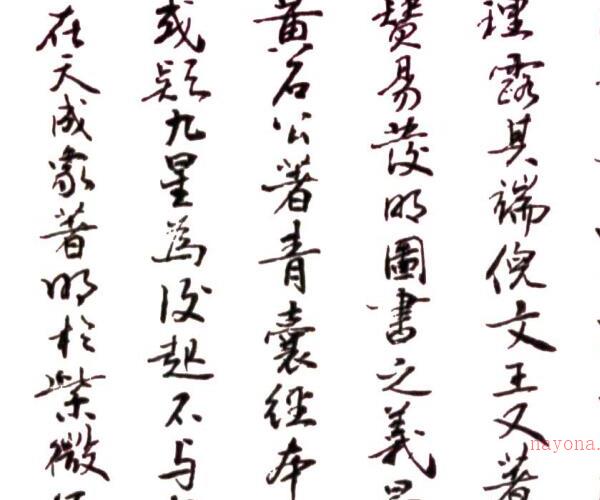 理露其端倪文王又著
贊易發明圖書之義
黄石公著青囊經本
或疑九星為後起不与
在天成象著明於紫微
nayona.